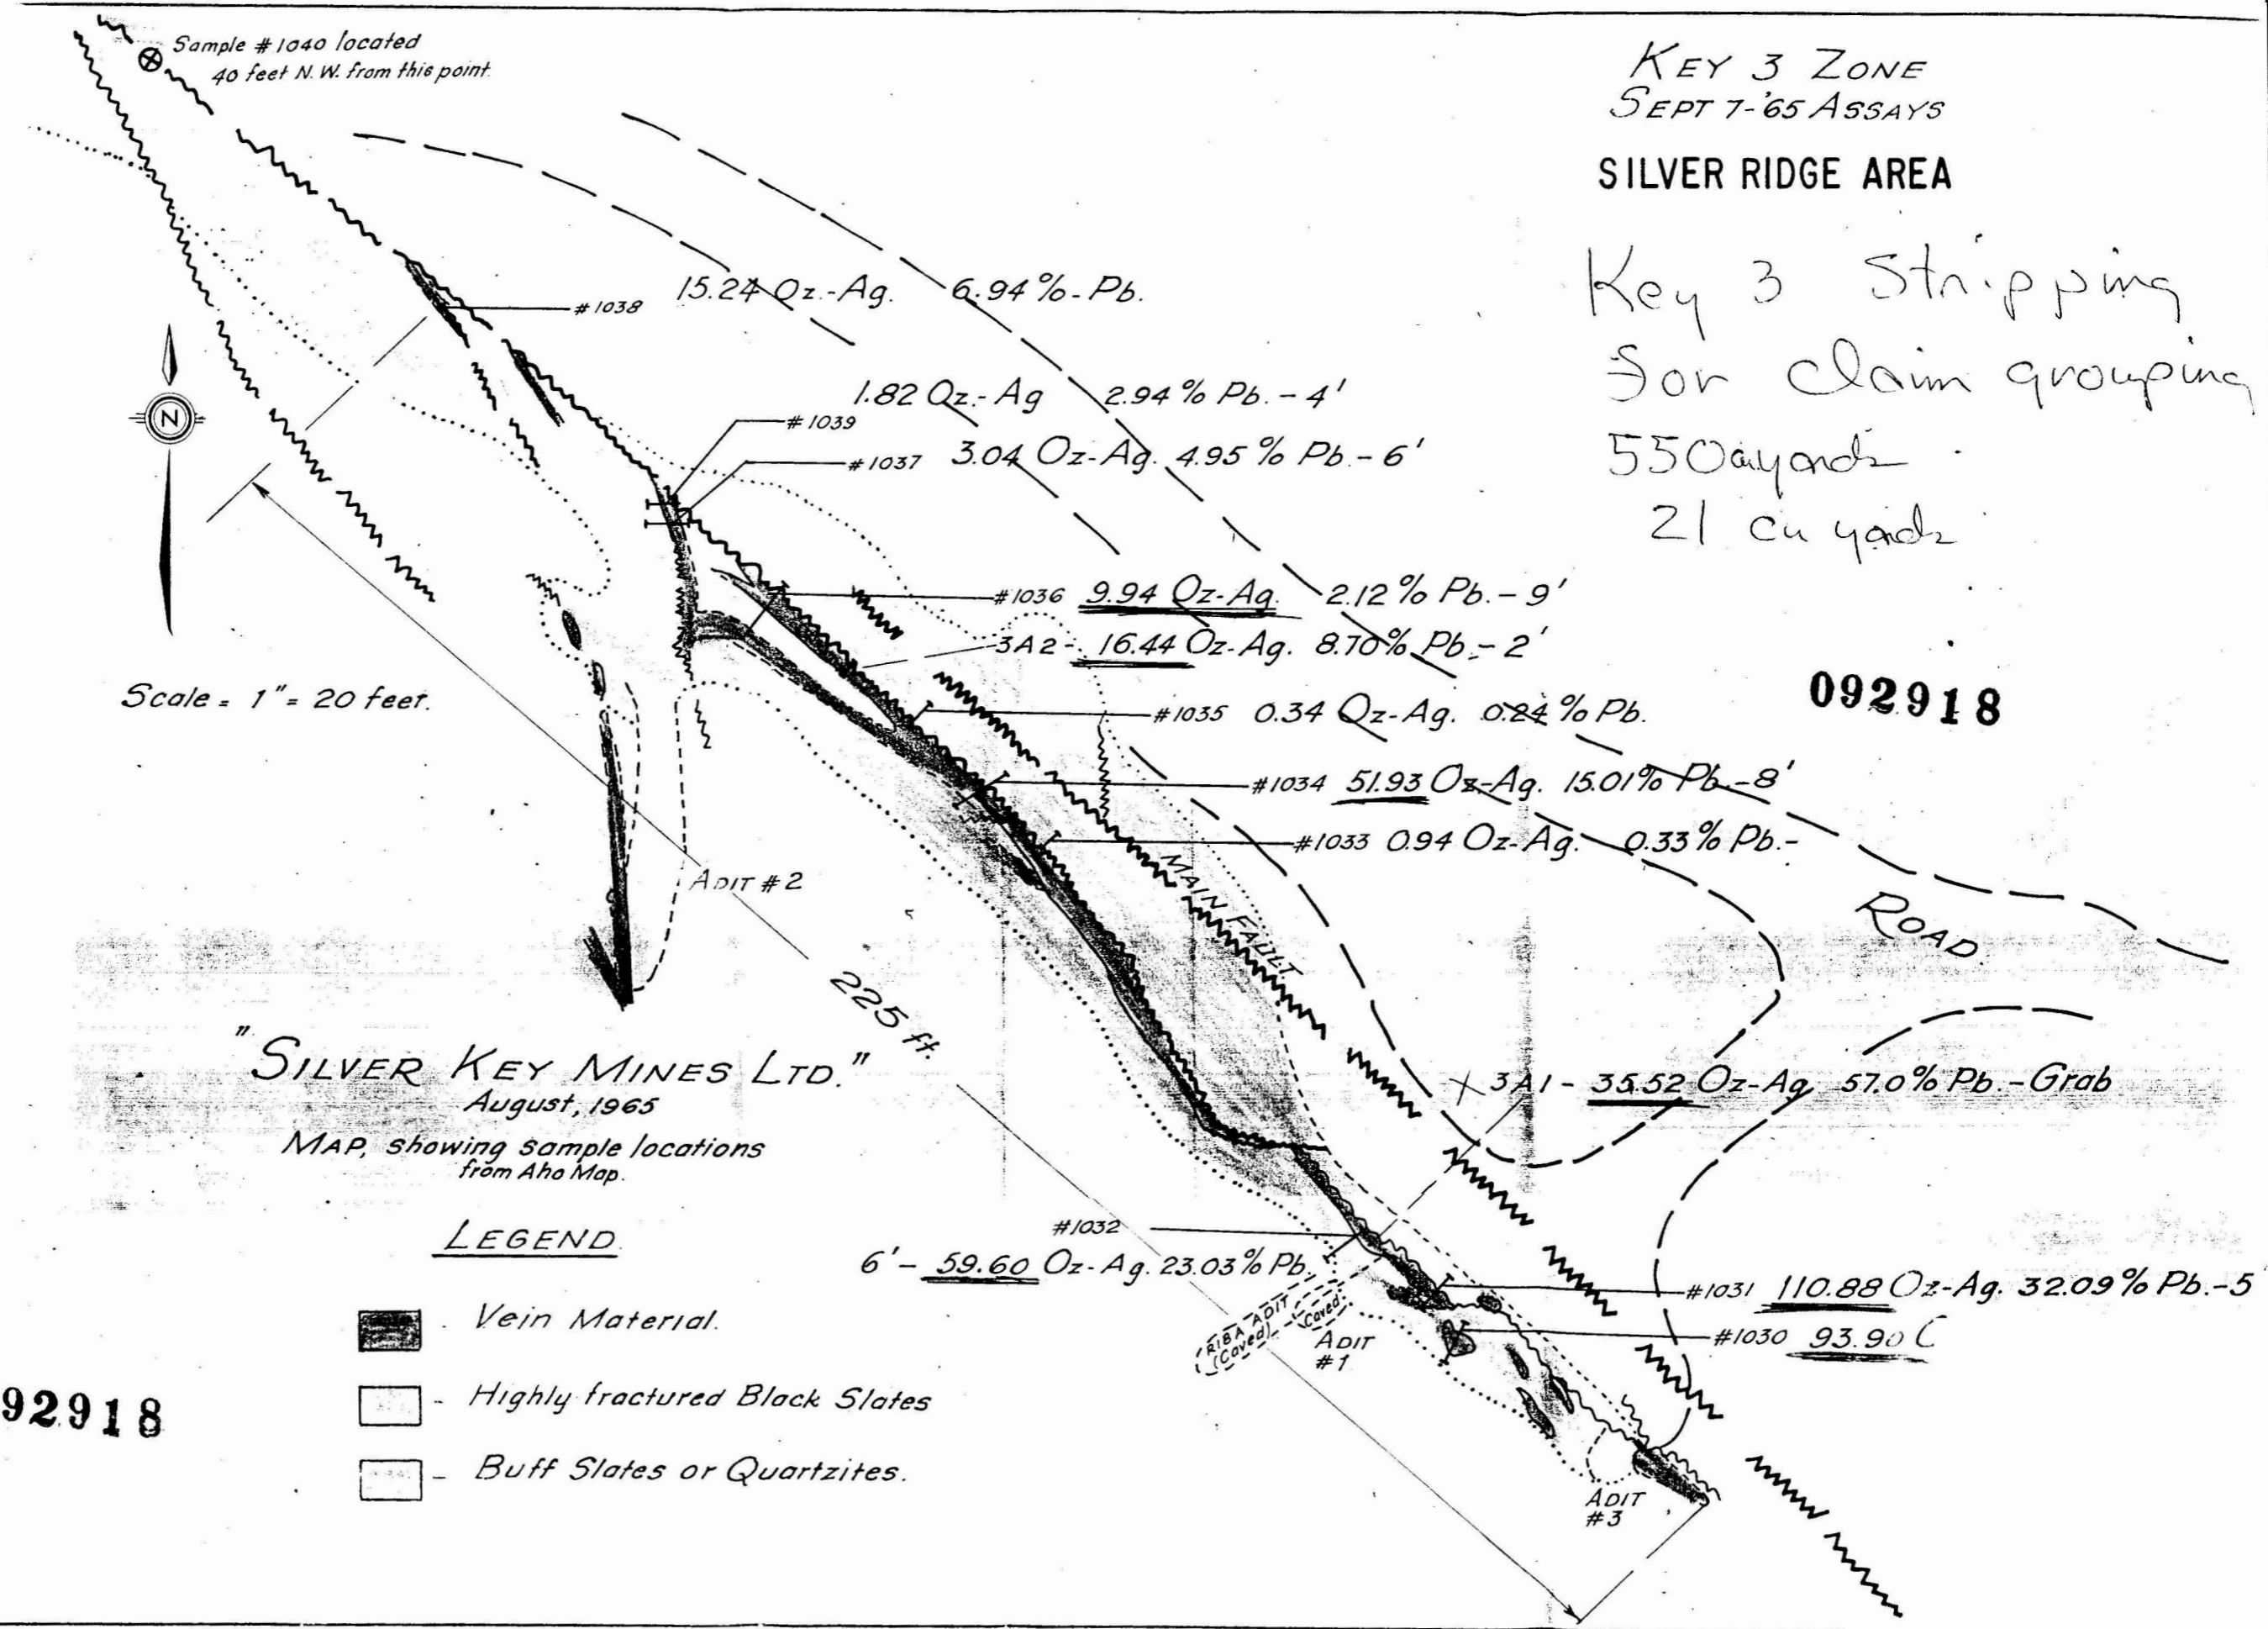 Sample #1040 located
40 feet N.W. from this point.
KEY 3 ZONE
SEPT 7-'65 ASSAYS
SILVER RIDGE AREA
Key 3 Stripping
for claim grouping
550 cu yards
21 cu yards
#1038 15.24 Oz.-Ag. 6.94%-Pb.
1.82 Oz.-Ag 2.94% Pb.-4'
#1039
#1037 3.04 Oz-Ag. 4.95% Pb.-6'
N
#1036 9.94 Oz-Ag. 2.12% Pb.-9'
3A2-16.44 Oz-Ag. 8.70% Pb.-2'
Scale = 1" = 20 feet.
092918
#1035 0.34 Oz-Ag. 0.24% Pb.
#1034 51.93 Oz-Ag. 15.01% Pb.-8'
#1033 0.94 Oz-Ag. 0.33% Pb.-
MAIN FAULT
ADIT #2
ROAD
225 ft.
"SILVER KEY MINES LTD."
August, 1965
MAP, showing sample locations
from Aho Map.
X 3A1-35.52 Oz-Ag 57.0% Pb.-Grab
LEGEND
#1032
6'-59.60 Oz-Ag. 23.03% Pb.
#1031 110.88 Oz-Ag. 32.09% Pb.-5
#1030 93.90
RIBA ADIT
(Caved)
(Caved)
ADIT
#1
Vein Material.
- Highly fractured Black Slates
- Buff Slates or Quartzites.
92918
ADIT
#3